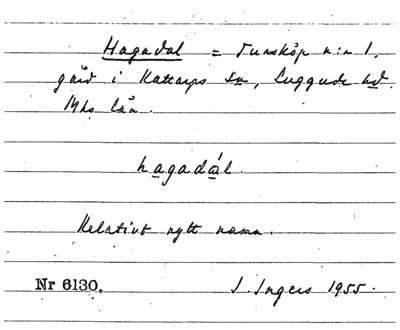 Hagadal = Tunsköp n:r 1,
gård i Kattarps sn, Luggude hd.
Mhs län.
hagadál.
Relativt nytt namn.
Nr 6130. I. Ingers 1955.